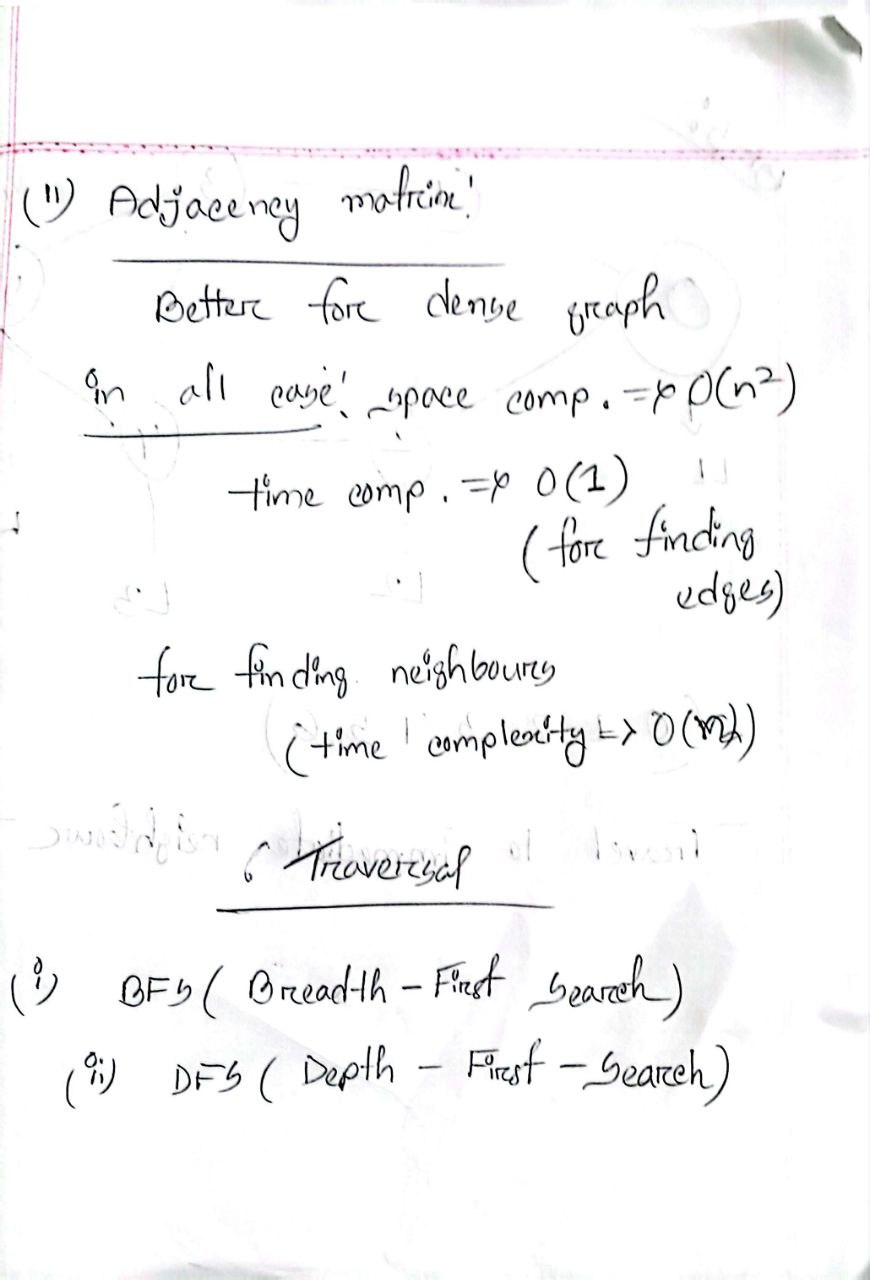 (ii) Adjacency matrix:
Better for dense graph
in all case: space comp. => O(n²)
time comp. => O(1)
(for finding
edges)
for finding neighbours
(time complexity => O(n))
Traversal
(i) BFS ( Breadth - First Search)
(ii) DFS ( Depth - First - Search)